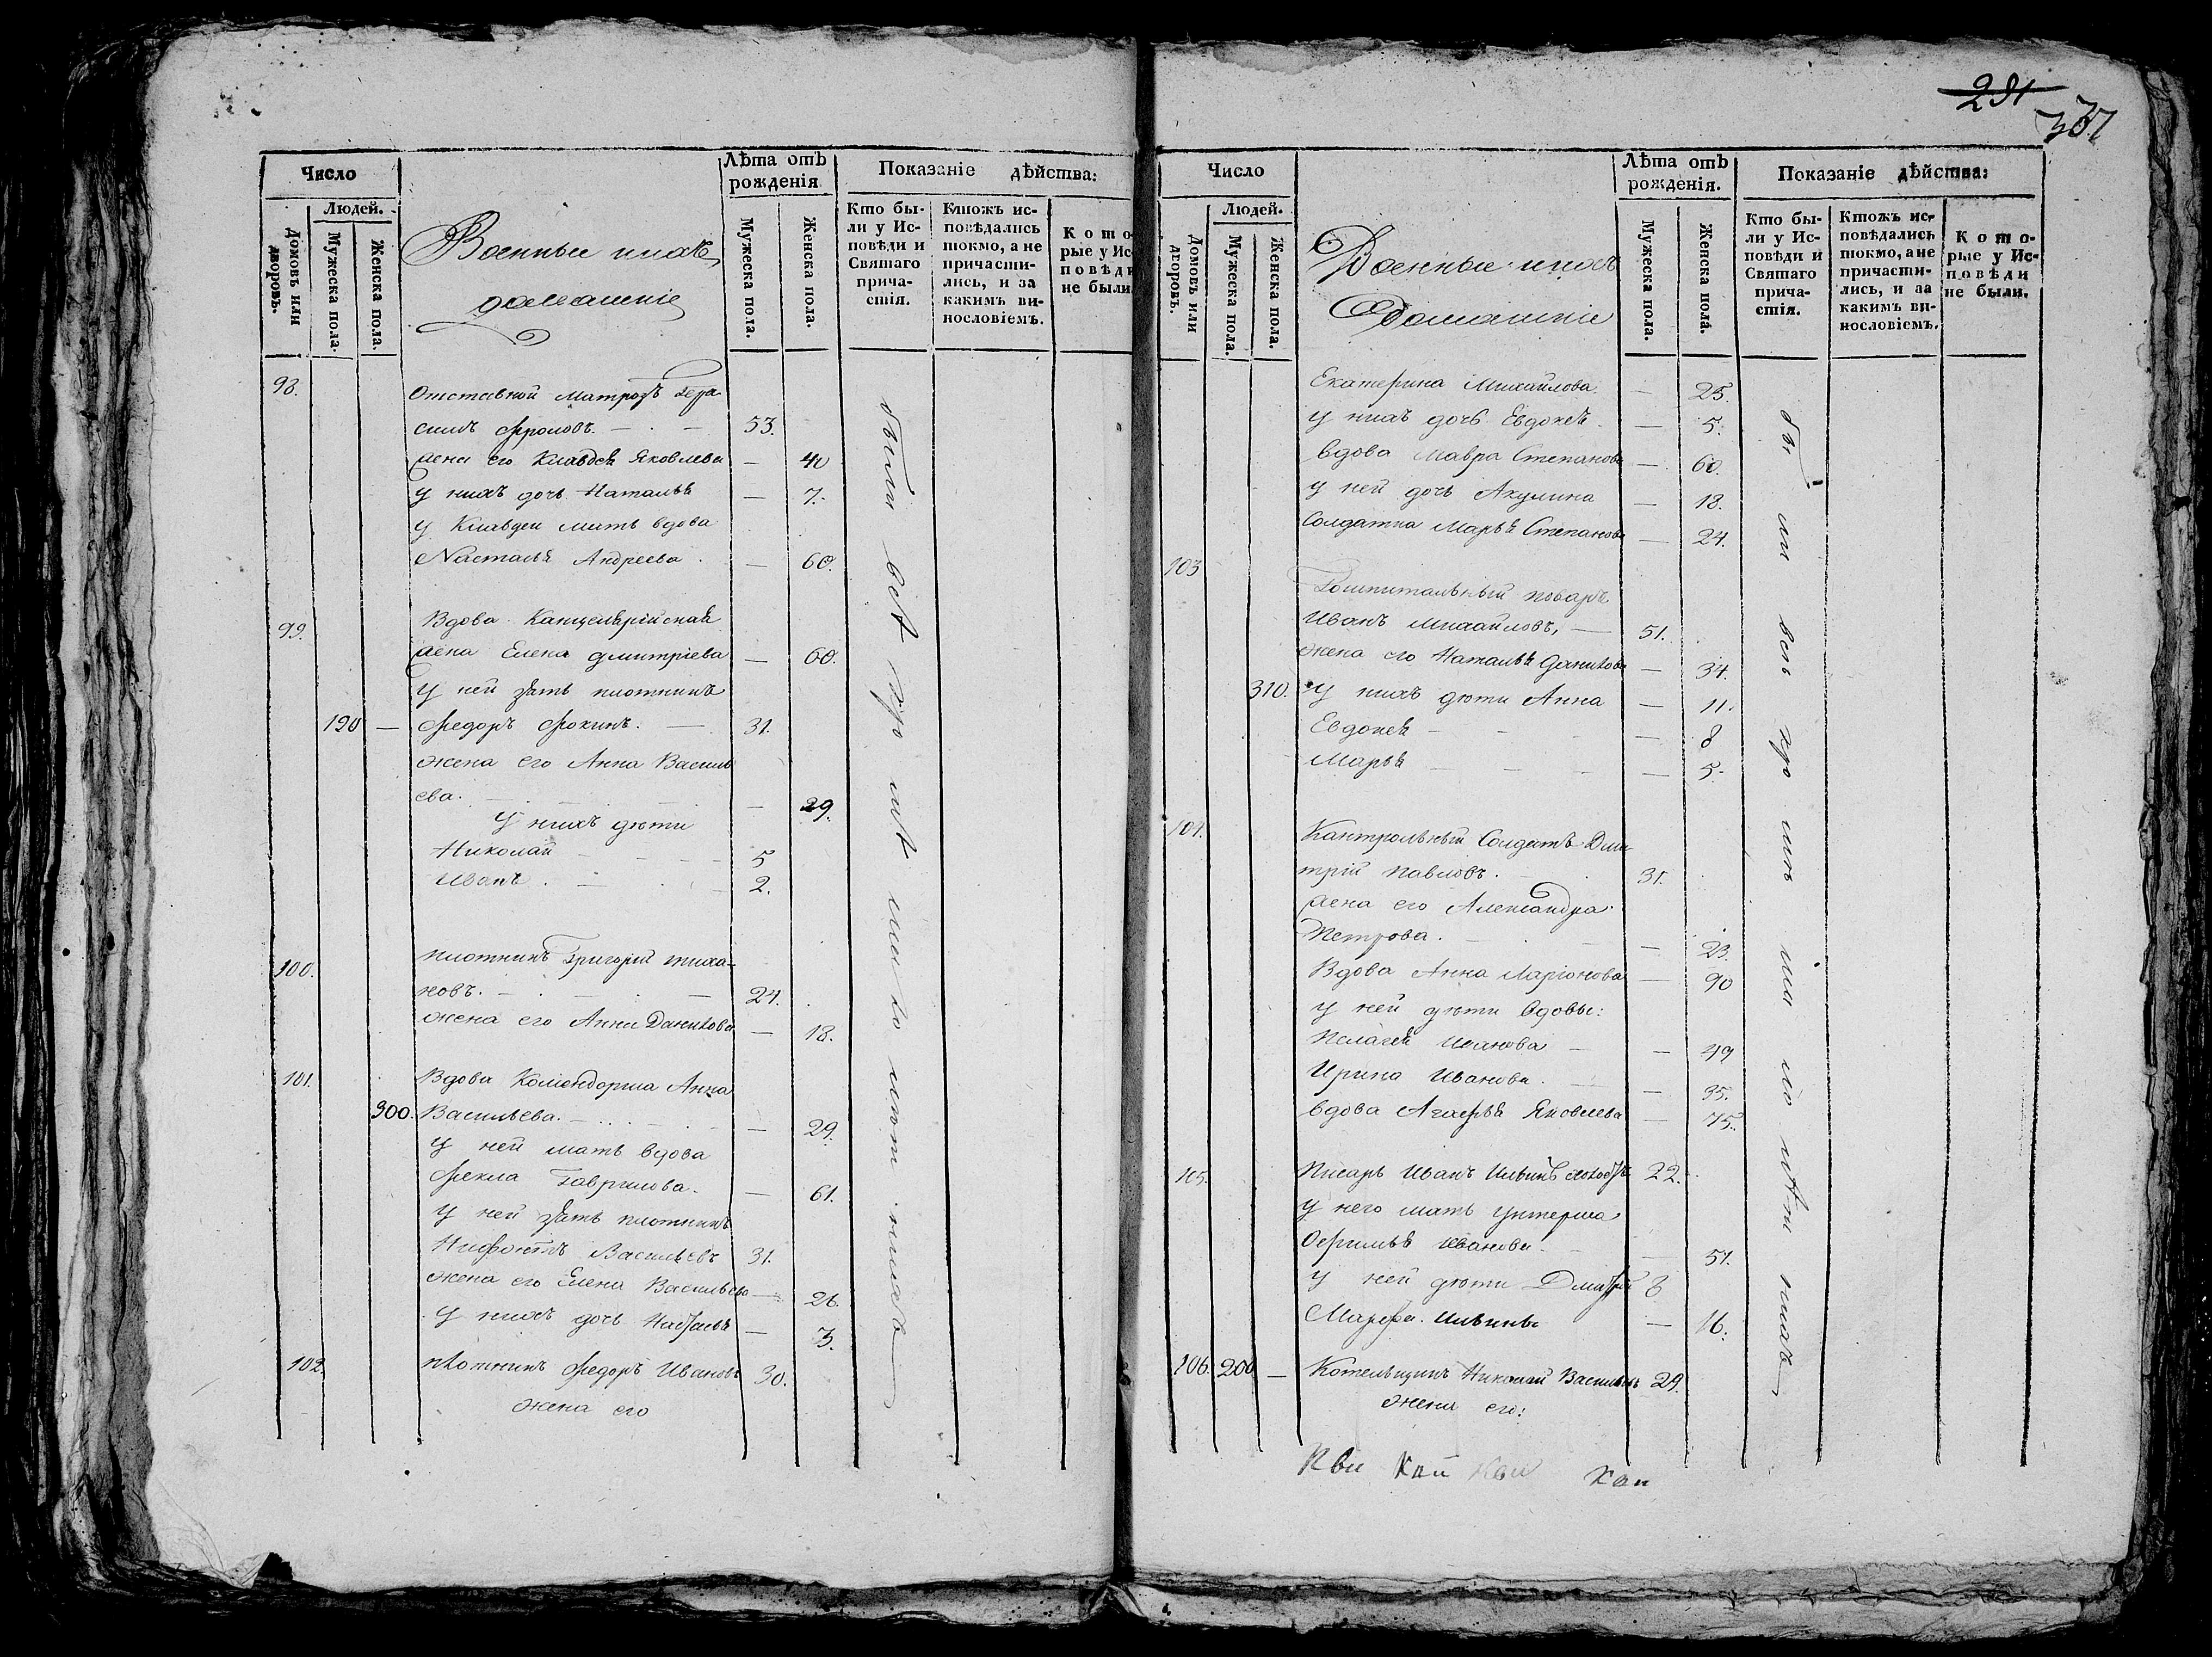 291
307
Число
Людей.
Домовъ или дворовъ.
Мужеска пола.
Женска пола.
Военные и ихъ
домашніе
Лѣта отъ рожденія
Мужеска пола.
Женска пола.
Показаніе дѣйства:
Кто бы-
ли у Ис-
повѣди и
Святаго
прича-
стія.
Ктожъ ис-
повѣдались
токмо, а не
причасти-
лись, и за
какимъ ви-
нословіемъ.
Кото-
рые у Ис-
повѣди
не были.
98. Отставной матрозъ Гера-
симъ Фроловъ. — 53.
жена его Клавдея Яковлева — 40
у нихъ дочь Наталья — 7.
у Клавдеи мать вдова
Настасья Андреева. — 60.
99. Вдова Канцелярійская
жена Елена Дмитріева — 60.
у ней зять плотникъ
190 — Федоръ Фокинъ. — 31.
жена его Анна Василь
ева. — 29.
У нихъ дѣти
Николай — 5
Иванъ. — 2.
100. плотникъ Григорій тиха-
новъ. — 24.
жена его Анна Данилова — 18.
101. Вдова Комендорша Анна
300. Васильева. — 29.
у ней мать вдова
Фекла Гаврилова. — 61.
у ней зять плотникъ
Нифонтъ Васильевъ 31.
жена его Елена Васильева — 26.
у нихъ дочь Наталья — 3.
102. плотникъ Федоръ Ивановъ 30.
жена его
были всѣ
Число
Людей.
Домовъ или дворовъ.
Мужеска пола.
Женска пола.
Военные и ихъ
Домашніе
Лѣта отъ рожденія.
Мужеска пола.
Женска пола.
Показаніе дѣйства:
Кто бы-
ли у Ис-
повѣди и
Святаго
прича-
стія.
Ктожъ ис-
повѣдались
токмо, а не
причасти-
лись, и за
какимъ ви-
нословіемъ.
Кото-
рые у Ис-
повѣди
не были.
Екатерина Михайлова — 25.
у нихъ дочь Евдокея. — 5.
вдова Мавра Степанова — 60.
у ней дочь Акулина — 18.
Солдатка Марья Степанова — 24.
103 Гошпитальный поваръ
Иванъ Михайловъ, — 51.
жена его Наталья Данилова — 34.
310. У нихъ дѣти Анна — 11.
Евдокея — 8
Марья — 5.
104. Кантрольный Солдатъ Дми
трій Павловъ. 31.
жена его Александра
Петрова. — 23.
Вдова Анна Ларіонова — 90
у ней дѣти вдовы:
Пелагея Иванова — 49
Ирина Иванова. — 35.
вдова Агафья Яковлева — 75.
105. Писарь Иванъ Ильинъ 22.
у него мать унтерша
Иванова. — 51.
у ней дѣти Дмитрій 8
Марфа. Ильины — 16.
106. 200 — Котельщикъ Николай Васильевъ 29.
жена его: